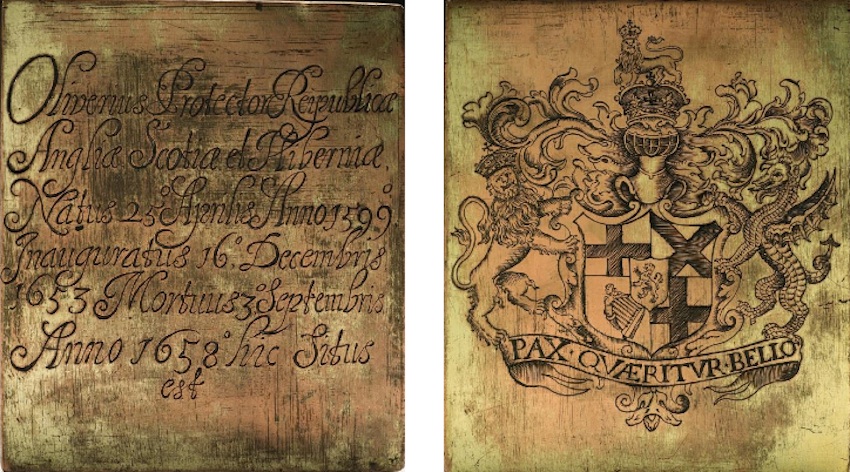 Oliverius Protector Reipublicæ
Angliæ Scotiæ et Hiberniæ.
Natus 25° Aprilis Anno 1599°
Inauguratus 16° Decembris
1653 Mortuus 3° Septembris
Anno 1658° hic Situs
est
PAX · QVÆRITVR · BELLO